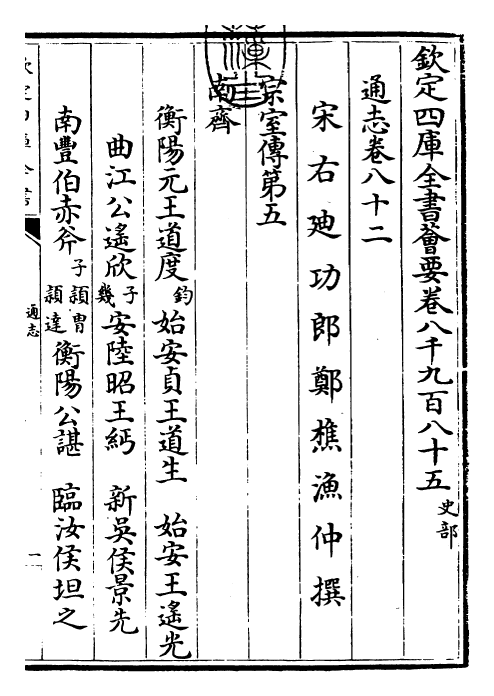 欽定四庫全書薈要卷八千九百八十五 史部
通志卷八十二
宋右迪功郎鄭樵漁仲撰
宗室傳第五
南齊
衡陽元王道度 鈞 始安貞王道生 始安王遙光
曲江公遙欣 子幾 安陸昭王緬 新吳侯景先
南豐伯赤斧 子穎胄 穎達 衡陽公諶 臨汝侯坦之
通志
一